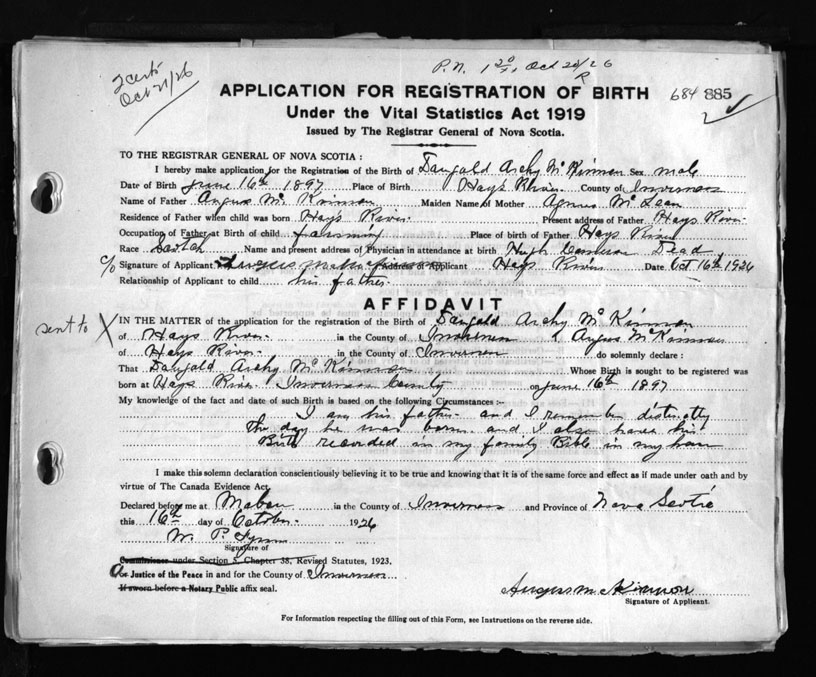 P.N. 1 20/71 Oct 20/26
R
2 certs
Oct 21/26
684 885
APPLICATION FOR REGISTRATION OF BIRTH
Under the Vital Statistics Act 1919
Issued by The Registrar General of Nova Scotia.
TO THE REGISTRAR GENERAL OF NOVA SCOTIA:
I hereby make application for the Registration of the Birth of Dangald Archy McKinnon Sex male
Date of Birth June 16th 1897 Place of Birth Hays River County of Inverness
Name of Father Angus McKinnon Maiden Name of Mother Agnus McLean
Residence of Father when child was born Hays River Present address of Father Hays River
Occupation of Father at Birth of child farming Place of birth of Father Hays River
Race Scotch Name and present address of Physician in attendance at birth Hugh Cameron Dead
c/o Signature of Applicant Angus McKinnon Address of Applicant Hays River Date Oct 16th 1926
Relationship of Applicant to child his father
AFFIDAVIT
sent to X IN THE MATTER of the application for the registration of the Birth of Dangald Archy McKinnon
of Hays River in the County of Inverness I, Angus McKinnon
of Hays River in the County of Inverness do solemnly declare:
That Dangald Archy McKinnon Whose Birth is sought to be registered was
born at Hays River Inverness County on June 16th 1897
My knowledge of the fact and date of such Birth is based on the following Circumstances:—
I am his father and I remember distinctly
the day he was born and I also have his
Birth recorded in my family Bible in my home
I make this solemn declaration conscientiously believing it to be true and knowing that it is of the same force and effect as if made under oath and by
virtue of The Canada Evidence Act.
Declared before me at Mabou in the County of Inverness and Province of Nova Scotia
this 16th day of October 1926
W. P.
Signature of
Commissioner under Section 5, Chapter 38, Revised Statutes, 1923.
Or Justice of the Peace in and for the County of Inverness
If sworn before a Notary Public affix seal.
Angus McKinnon
Signature of Applicant.
For Information respecting the filling out of this Form, see Instructions on the reverse side.